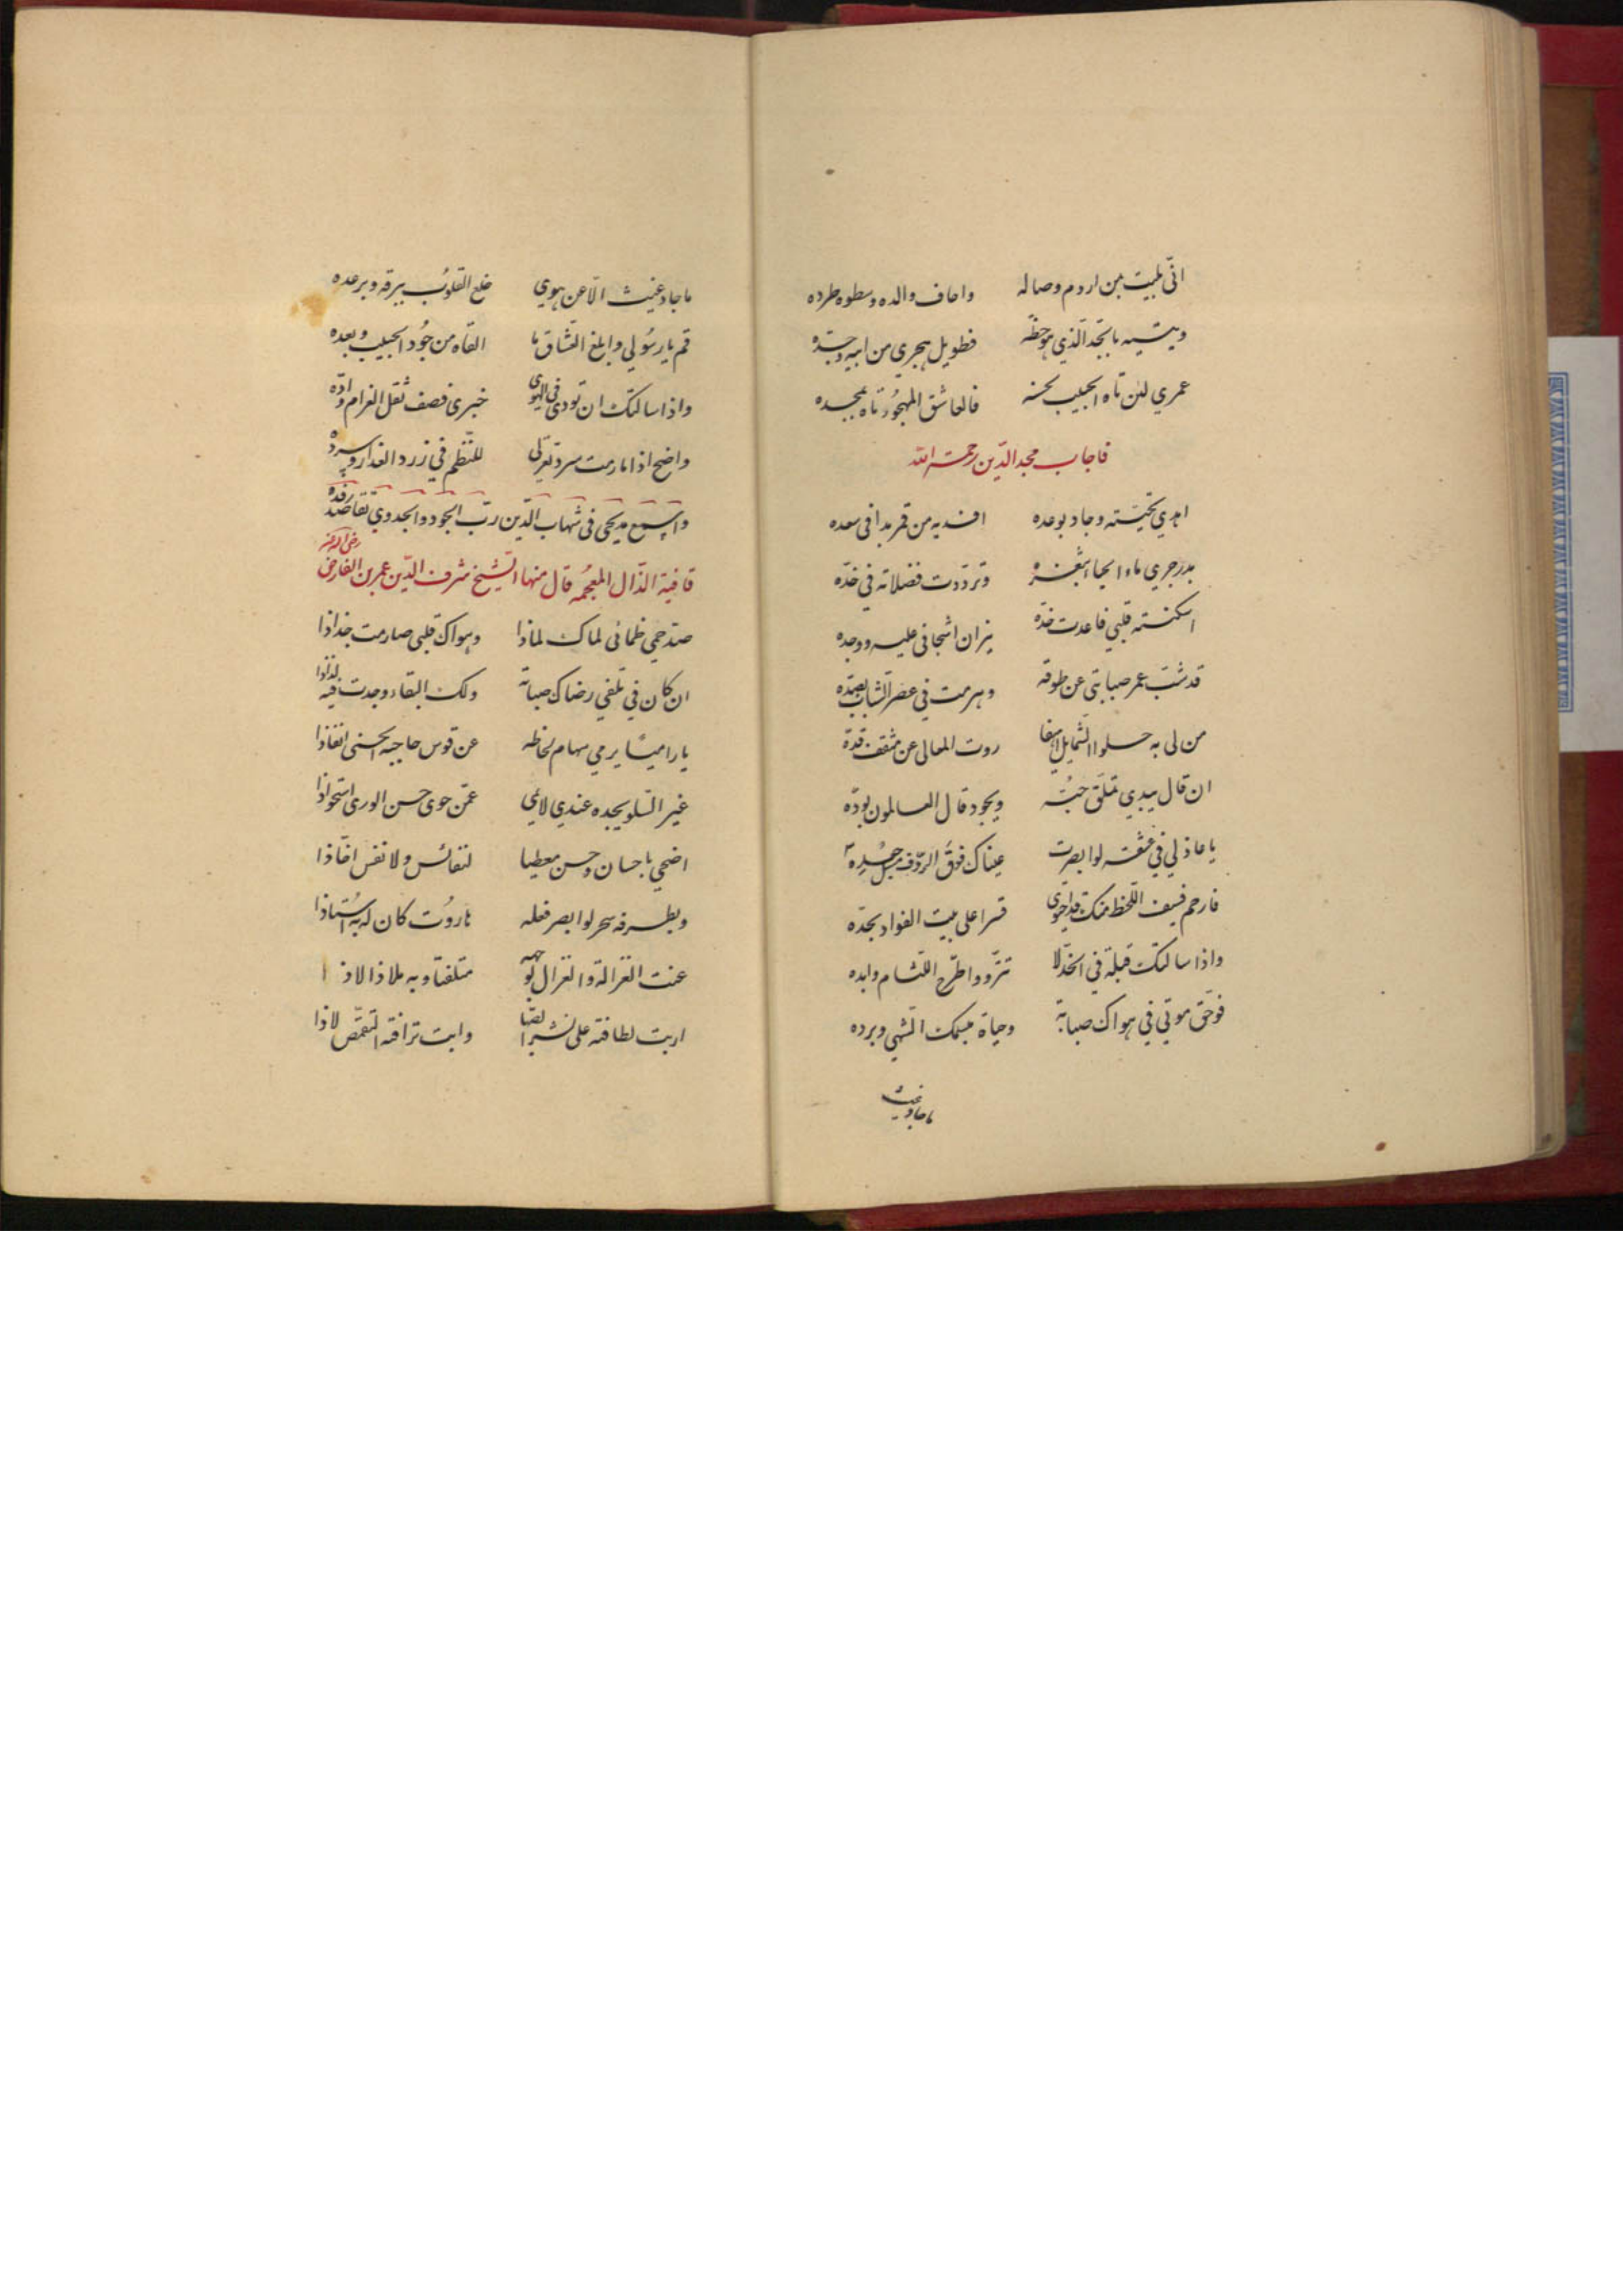 انّي بليت بمن اروم وصاله واخاف والده وسطوه طرده
ويتيه بالجّد الّذي هو حظّه فطويل هجري من ابيه وجدّه
عمري لئن تاه الحبيب بحسنه فالعاشق المهجُور تاه بمجده
فاجاب مجد الدّين رحمة الله
اهدي تحيّته وجاد بوعده افديه من قمر بدا في سعده
بدر جري ماء الحيا ء بثغره وتردّدت فضلاته في خدّه
اسكنته قلبي فاعدت خدّه نيران اشجاني عليه ووجده
قد شبّ عمر صبابتي عن طوقه وهرمت في عصر الشّباب بصدّه
من لي به حلوا الشّمايل اهيفا روت المعالي عن مثقف قدّه
ان قال يبدي تملّق حبّه ويجود قال العالمون بودّه
يا عاذلي في عشقه لو ابصرت عيناك فوق الردّف مسبل جعده
فارحم فسيف اللّحظ منك قد احتوى قسرا على بيت الفواد بحدّه
واذا سالتك قبلة في الخدّ لا تزّور واطّرح اللّثام وابده
فوحقّ موتي في هواك صبابة وحياة مبسمك الشّهي وبرده
ما جاد غيث
ما جاد غيث الّا عن هوي خلع القلوُب ببرقه وبرعده
قم يا رسُولي وابلغ العشّاق ما القاه من جُود الحبيب وبعده
واذا سالتك ان تودى في الهوى خبري فصف ثقل الغرام وادّه
واضح اذا ما رمت سرد تغزلي للنّظم في زرد العذار وسرده
واسمع مديحي في شهاب الدّين ربّ الجود والجدوي لقاصد رفده
قافية الذّال المعجُمه قال منها الشّيخ شرف الدّين عمر بن الفارض رضى الله عنه
صدّ حمي ظمائي لماك لماذا وهواك قلبي صار منه جذاذا
ان كان في تلفي رضاك صبابة ولك البقاء وجدت فيه لذاذا
يا راميًا يرمي سهام لحاظه عن قوس حاجبه الحشى انفاذا
غير السّلو يجده عندي لائمي عمّن حوى حسن الورى استحواذا
اضحي باحسان وحسن معطيا لنفائس ولا نفس اخّاذا
وبطرفه سحر لو ابصر فعله هاروُت كان له به اُستاذا
عنت الغزالة والغزال لوجهه متلفتا وبه ملاذا لاذا
اربت لطافته على نشر الصّبا وابت ترافته التّقمّص لاذا